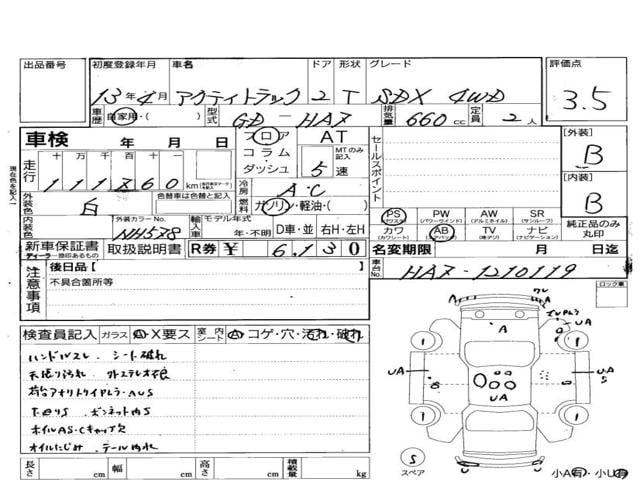 出品番号 初度登録年月 車名 ドア 形状 グレード 評価点
13年4月 アクティトラック 2 T SDX 4WD 3.5
車歴 自家用・( ) 型式 GD-HA7 排気量 660cc 定員 2人
車検 年 月 日 フロア AT
コラム・ダッシュ MTのみ記入 5速
セールスポイント
【外装】 B
【内装】 B
現在色を記入
走行 十万 万 千 百 十 一
111760km
冷房 A・C
外装色 白 色替車は色替と記入
燃料 ガソリン・軽油・( )
内装色 外装カラーNo. NH578 輸入車 モデル年式 年・不明 D車・並 右H・左H
PS (パワステ) PW (パワーウインド) AW (アルミホイル) SR (サンルーフ)
カワ (カワシート) AB (エアバック) TV (地デジ) ナビ (ナビゲーション)
純正品のみ丸印
新車保証書 ディーラー捺印あるもの 取扱説明書 R券 ¥ 6,130
名変期限 月 日迄
車台No. HA7-1210119
注意事項 後日品【 】
不具合箇所等
ロック車
検査員記入 ガラス A・X要ス 室内シート A・コゲ・穴・汚れ・破れ
ハンドルスレ シート破れ
天張り汚れ 外ステレオ不良
荷台アオリトリイドムラ・AUS
下廻りS ボンネット内S
ホイルAS・Cキャップ欠
オイルにじみ テール内汚れ
A
UA
UA
UA
UA
S
1
1
1
1
S
スペア
小A有・小U有
長さ cm 幅 cm 高さ cm 積載量 kg